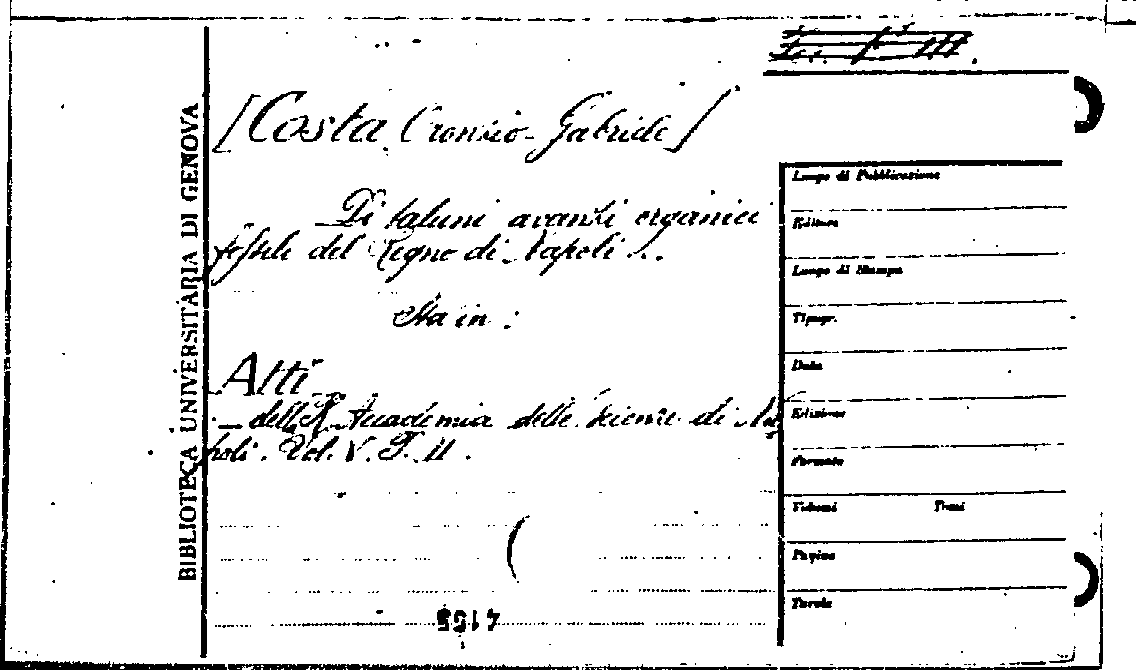 BIBLIOTECA UNIVERSITARIA DI GENOVA
[Costa (Oronzio-Gabriele]
Di taluni avanzi organici
fossili del Regno di Napoli...
Sta in:
Atti
- della R. Accademia delle Scienze di Na-
poli. Vol. V. P. II.
4155
Luogo di Pubblicazione
Editore
Luogo di Stampa
Tipogr.
Data
Edizione
Formato
Volumi Tomi
Pagine
Tavole